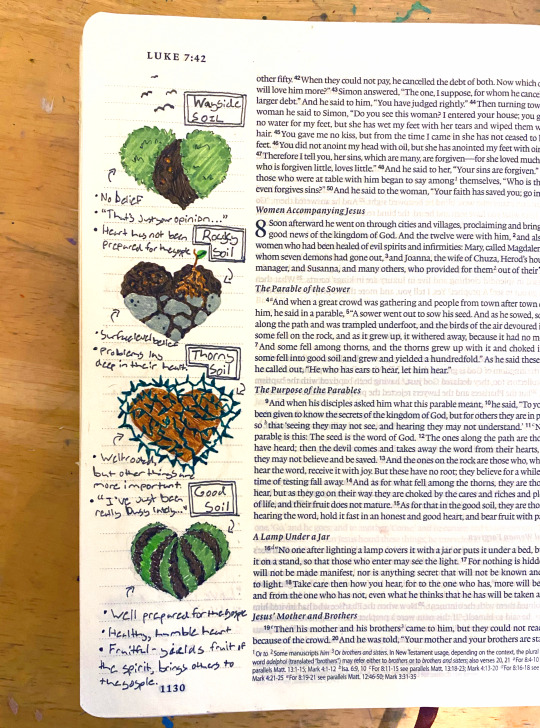 LUKE 7:42
Wayside
Soil
• No belief
• "That's just your opinion..."
• Heart has not been
prepared for the gospel
Rocky
Soil
• Surface level belief
• Problems lay
deep in their heart
Thorny
Soil
• Well rooted,
but other things are
more important
• "I've just been
really busy lately..."
Good
Soil
• Well prepared for the gospel
• Healthy, humble heart
• Fruitful - yields fruit of
the spirit, brings others to
the gospel.
1130
other fifty. 42 When they could not pay, he cancelled the debt of both. Now which
will love him more?" 43 Simon answered, "The one, I suppose, for whom he cance
larger debt." And he said to him, "You have judged rightly." 44 Then turning tow
woman he said to Simon, "Do you see this woman? I entered your house; you g
no water for my feet, but she has wet my feet with her tears and wiped them w
hair. 45 You gave me no kiss, but from the time I came in she has not ceased to
feet. 46 You did not anoint my head with oil, but she has anointed my feet with oin
47 Therefore I tell you, her sins, which are many, are forgiven—for she loved much
who is forgiven little, loves little." 48 And he said to her, "Your sins are forgiven."
those who were at table with him began to say among themselves, "Who is th
even forgives sins?" 50 And he said to the woman, "Your faith has saved you; go in
Women Accompanying Jesus
8 Soon afterward he went on through cities and villages, proclaiming and bring
good news of the kingdom of God. And the twelve were with him, 2 and als
women who had been healed of evil spirits and infirmities: Mary, called Magdalen
whom seven demons had gone out, 3 and Joanna, the wife of Chuza, Herod's hou
manager, and Susanna, and many others, who provided for them out of their
The Parable of the Sower
4 And when a great crowd was gathering and people from town after town
him, he said in a parable, 5 "A sower went out to sow his seed. And as he sowed, so
along the path and was trampled underfoot, and the birds of the air devoured i
some fell on the rock, and as it grew up, it withered away, because it had no m
7 And some fell among thorns, and the thorns grew up with it and choked i
some fell into good soil and grew and yielded a hundredfold." As he said these
he called out, "He who has ears to hear, let him hear."
The Purpose of the Parables
9 And when his disciples asked him what this parable meant, 10 he said, "To yo
been given to know the secrets of the kingdom of God, but for others they are in p
so that 'seeing they may not see, and hearing they may not understand.'
parable is this: The seed is the word of God. 12 The ones along the path are tho
have heard; then the devil comes and takes away the word from their hearts,
they may not believe and be saved. 13 And the ones on the rock are those who, wh
hear the word, receive it with joy. But these have no root; they believe for a while
time of testing fall away. 14 And as for what fell among the thorns, they are tho
hear, but as they go on their way they are choked by the cares and riches and pl
of life, and their fruit does not mature. 15 As for that in the good soil, they are tho
hearing the word, hold it fast in an honest and good heart, and bear fruit with pa
A Lamp Under a Jar
16 "No one after lighting a lamp covers it with a jar or puts it under a bed, b
it on a stand, so that those who enter may see the light. 17 For nothing is hidd
will not be made manifest, nor is anything secret that will not be known and
to light. 18 Take care then how you hear, for to the one who has, more will be
and from the one who has not, even what he thinks that he has will be taken a
Jesus' Mother and Brothers
19 Then his mother and his brothers came to him, but they could not reac
because of the crowd. 20 And he was told, "Your mother and your brothers are sta